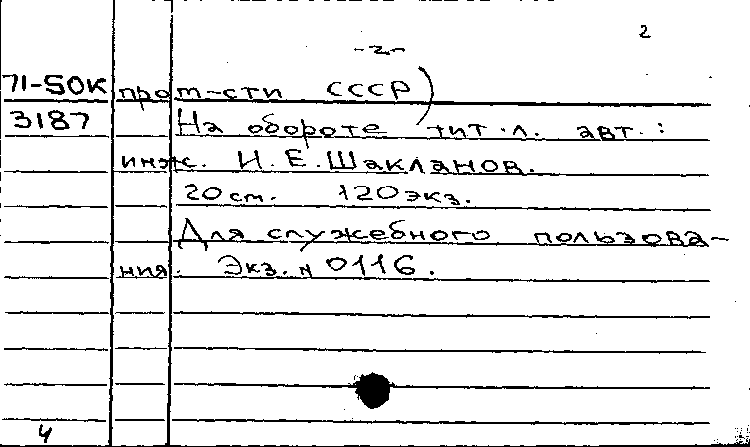 2
-2-
71-50K пром-сти СССР)
3187 На обороте тит.л. авт.:
инж. И.Е.Шакланов.
20 см. 120 экз.
Для служебного пользова-
ния. Экз. N 0116.
4